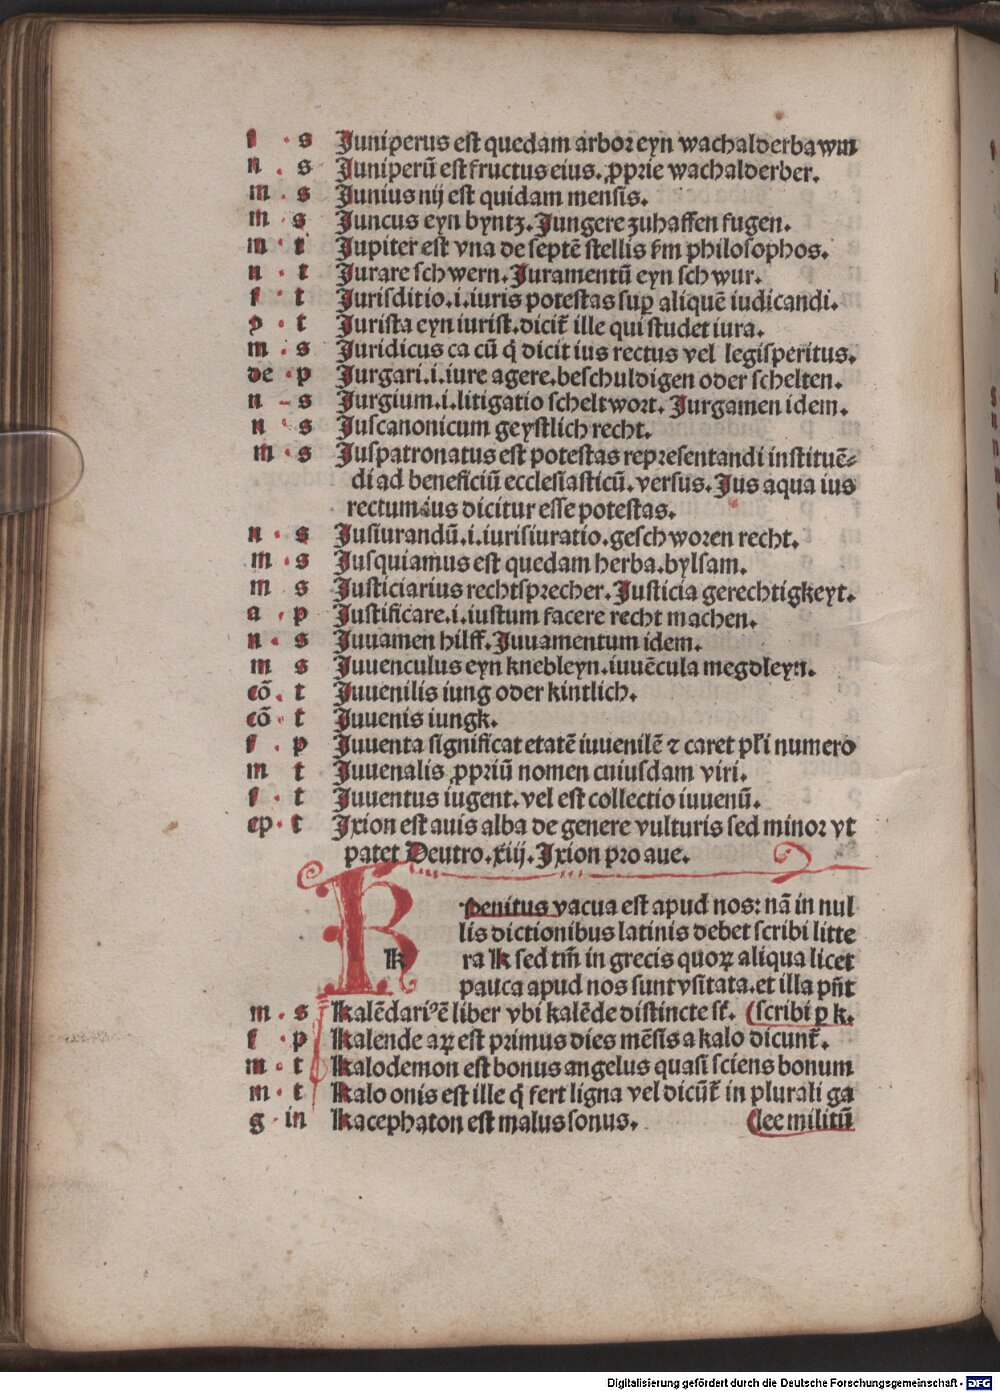 f · s Juniperus est quedam arbor eyn wachalderbawm
n . s Juniperū est fructus eius. ꝓprie wachalderber.
m · s Junius nij est quidam mensis.
m · s Juncus eyn byntz. Jungere zuhaffen fugen.
m · t Jupiter est vna de septē stellis fm philosophos.
n · t Jurare schwern. Juramentū eyn schwur.
f · t Jurisditio .i. iuris potestas suꝑ aliquē iudicandi.
ꝯ · t Jurista eyn iurist. dicit̃ ille qui studet iura.
m . s Juridicus ca cū q̇ dicit ius rectus vel legisperitus.
de · p Jurgari .i. iure agere. beschuldigen oder schelten.
n - s Jurgium .i. litigatio scheltwort. Jurgamen idem.
n · s Juscanonicum geystlich recht.
m · s Juspatronatus est potestas representandi instituē⸗
di ad beneficiū ecclesiasticū. versus. Jus aqua ius
rectum ius dicitur esse potestas.
n · s Jusiurandū .i. iurisiuratio. geschworen recht.
m · s Jusquiamus est quedam herba. bylsam.
m s Justiciarius rechtsprecher. Justicia gerechtigkeyt.
a · p Justificare .i. iustum facere recht machen.
n · s Juuamen hilff. Juuamentum idem.
m s Juuenculus eyn knebleyn. iuuēcula megdleyn.
cō . t Juuenilis iung oder kintlich.
cō · t Juuenis iungk.
f . p Juuenta significat etatē iuuenilē ⁊ caret pl̃i numero
m t Juuenalis ꝓpriū nomen cuiusdam viri.
f · t Juuentus iugent. vel est collectio iuuenū.
ep · t Ixion est auis alba de genere vulturis sed minor vt
patet Deutro. xiij. Ixion pro aue.
K penitus vacua est apud nos: nā in nul
lis dictionibus latinis debet scribi litte
k ra K sed tm̄ in grecis quoꝝ aliqua licet
pauca apud nos sunt vsitata. et illa pn̄t
m . s Kalēdariꝰ ē liber vbi kalēde distincte st̃. (scribi ꝑ k.
f · p Kalende aꝝ est primus dies mēsis a kalo dicunt̃.
m · t Kalodemon est bonus angelus quasi sciens bonum
m · t Kalo onis est ille q̇ fert ligna vel dicūt̃ in plurali ga
g · in Kacephaton est malus sonus. (lee militū
Digitalisierung gefördert durch die Deutsche Forschungsgemeinschaft - DFG